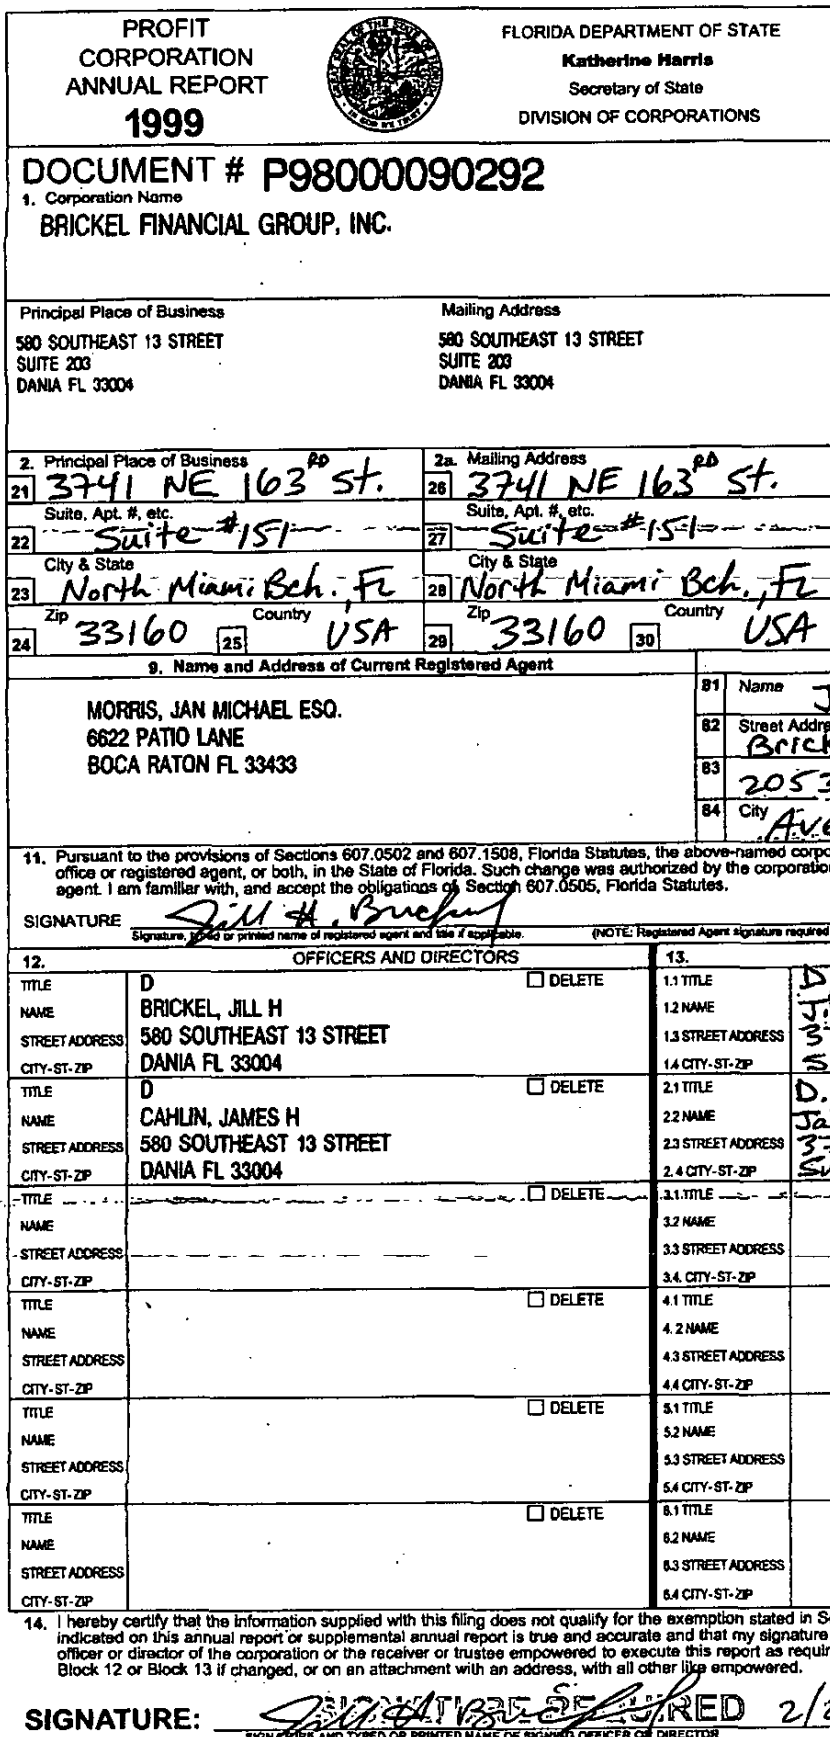 PROFIT
CORPORATION
ANNUAL REPORT
1999
FLORIDA DEPARTMENT OF STATE
Katherine Harris
Secretary of State
DIVISION OF CORPORATIONS
DOCUMENT # P98000090292
1. Corporation Name
BRICKEL FINANCIAL GROUP, INC.
Principal Place of Business
580 SOUTHEAST 13 STREET
SUITE 203
DANIA FL 33004
Mailing Address
580 SOUTHEAST 13 STREET
SUITE 203
DANIA FL 33004
2. Principal Place of Business
21 3741 NE 163 RD St.
Suite, Apt. #, etc.
22 Suite #151
City & State
23 North Miami Bch., FL
Zip Country
24 33160 25 USA
2a. Mailing Address
26 3741 NE 163 RD St.
Suite, Apt. #, etc.
27 Suite #151
City & State
28 North Miami Bch., FL
Zip Country
29 33160 30 USA
9. Name and Address of Current Registered Agent
MORRIS, JAN MICHAEL ESQ.
6622 PATIO LANE
BOCA RATON FL 33433
81 Name J
82 Street Addre
Brick
83
2053
84 City
Ave
11. Pursuant to the provisions of Sections 607.0502 and 607.1508, Florida Statutes, the above-named corpo
office or registered agent, or both, in the State of Florida. Such change was authorized by the corporation
agent. I am familiar with, and accept the obligations of, Section 607.0505, Florida Statutes.
SIGNATURE Jill H. Brickel
Signature, typed or printed name of registered agent and title if applicable. (NOTE: Registered Agent signature required
12. OFFICERS AND DIRECTORS 13.
TITLE D DELETE 1.1 TITLE D
NAME BRICKEL, JILL H 1.2 NAME
STREET ADDRESS 580 SOUTHEAST 13 STREET 1.3 STREET ADDRESS
CITY-ST-ZIP DANIA FL 33004 1.4 CITY-ST-ZIP
TITLE D DELETE 2.1 TITLE D.
NAME CAHLIN, JAMES H 2.2 NAME Ja
STREET ADDRESS 580 SOUTHEAST 13 STREET 2.3 STREET ADDRESS 3
CITY-ST-ZIP DANIA FL 33004 2.4 CITY-ST-ZIP Su
TITLE DELETE 3.1. TITLE
NAME 3.2 NAME
STREET ADDRESS 3.3 STREET ADDRESS
CITY-ST-ZIP 3.4. CITY-ST-ZIP
TITLE DELETE 4.1 TITLE
NAME 4.2 NAME
STREET ADDRESS 4.3 STREET ADDRESS
CITY-ST-ZIP 4.4 CITY-ST-ZIP
TITLE DELETE 5.1 TITLE
NAME 5.2 NAME
STREET ADDRESS 5.3 STREET ADDRESS
CITY-ST-ZIP 5.4 CITY-ST-ZIP
TITLE DELETE 6.1 TITLE
NAME 6.2 NAME
STREET ADDRESS 6.3 STREET ADDRESS
CITY-ST-ZIP 6.4 CITY-ST-ZIP
14. I hereby certify that the information supplied with this filing does not qualify for the exemption stated in S
indicated on this annual report or supplemental annual report is true and accurate and that my signature
officer or director of the corporation or the receiver or trustee empowered to execute this report as requir
Block 12 or Block 13 if changed, or on an attachment with an address, with all other like empowered.
SIGNATURE: Jill H. Brickel SIGNATURE REQUIRED 2/2
SIGNATURE AND TYPED OR PRINTED NAME OF SIGNING OFFICER OR DIRECTOR